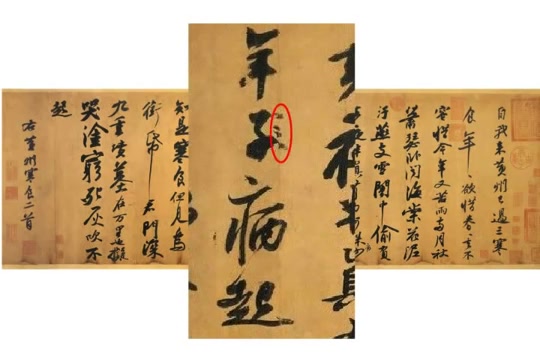 自我来黄州已過三寒
食年〻欲惜春〻去不
容惜今年又苦雨兩月秋
蕭瑟卧聞海棠花泥
汙燕支雪闇中偷負
年子病起
知是寒食但見烏
銜帋君門深
九重墳墓在万里也擬
哭塗窮死灰吹不
起
右黃州寒食二首